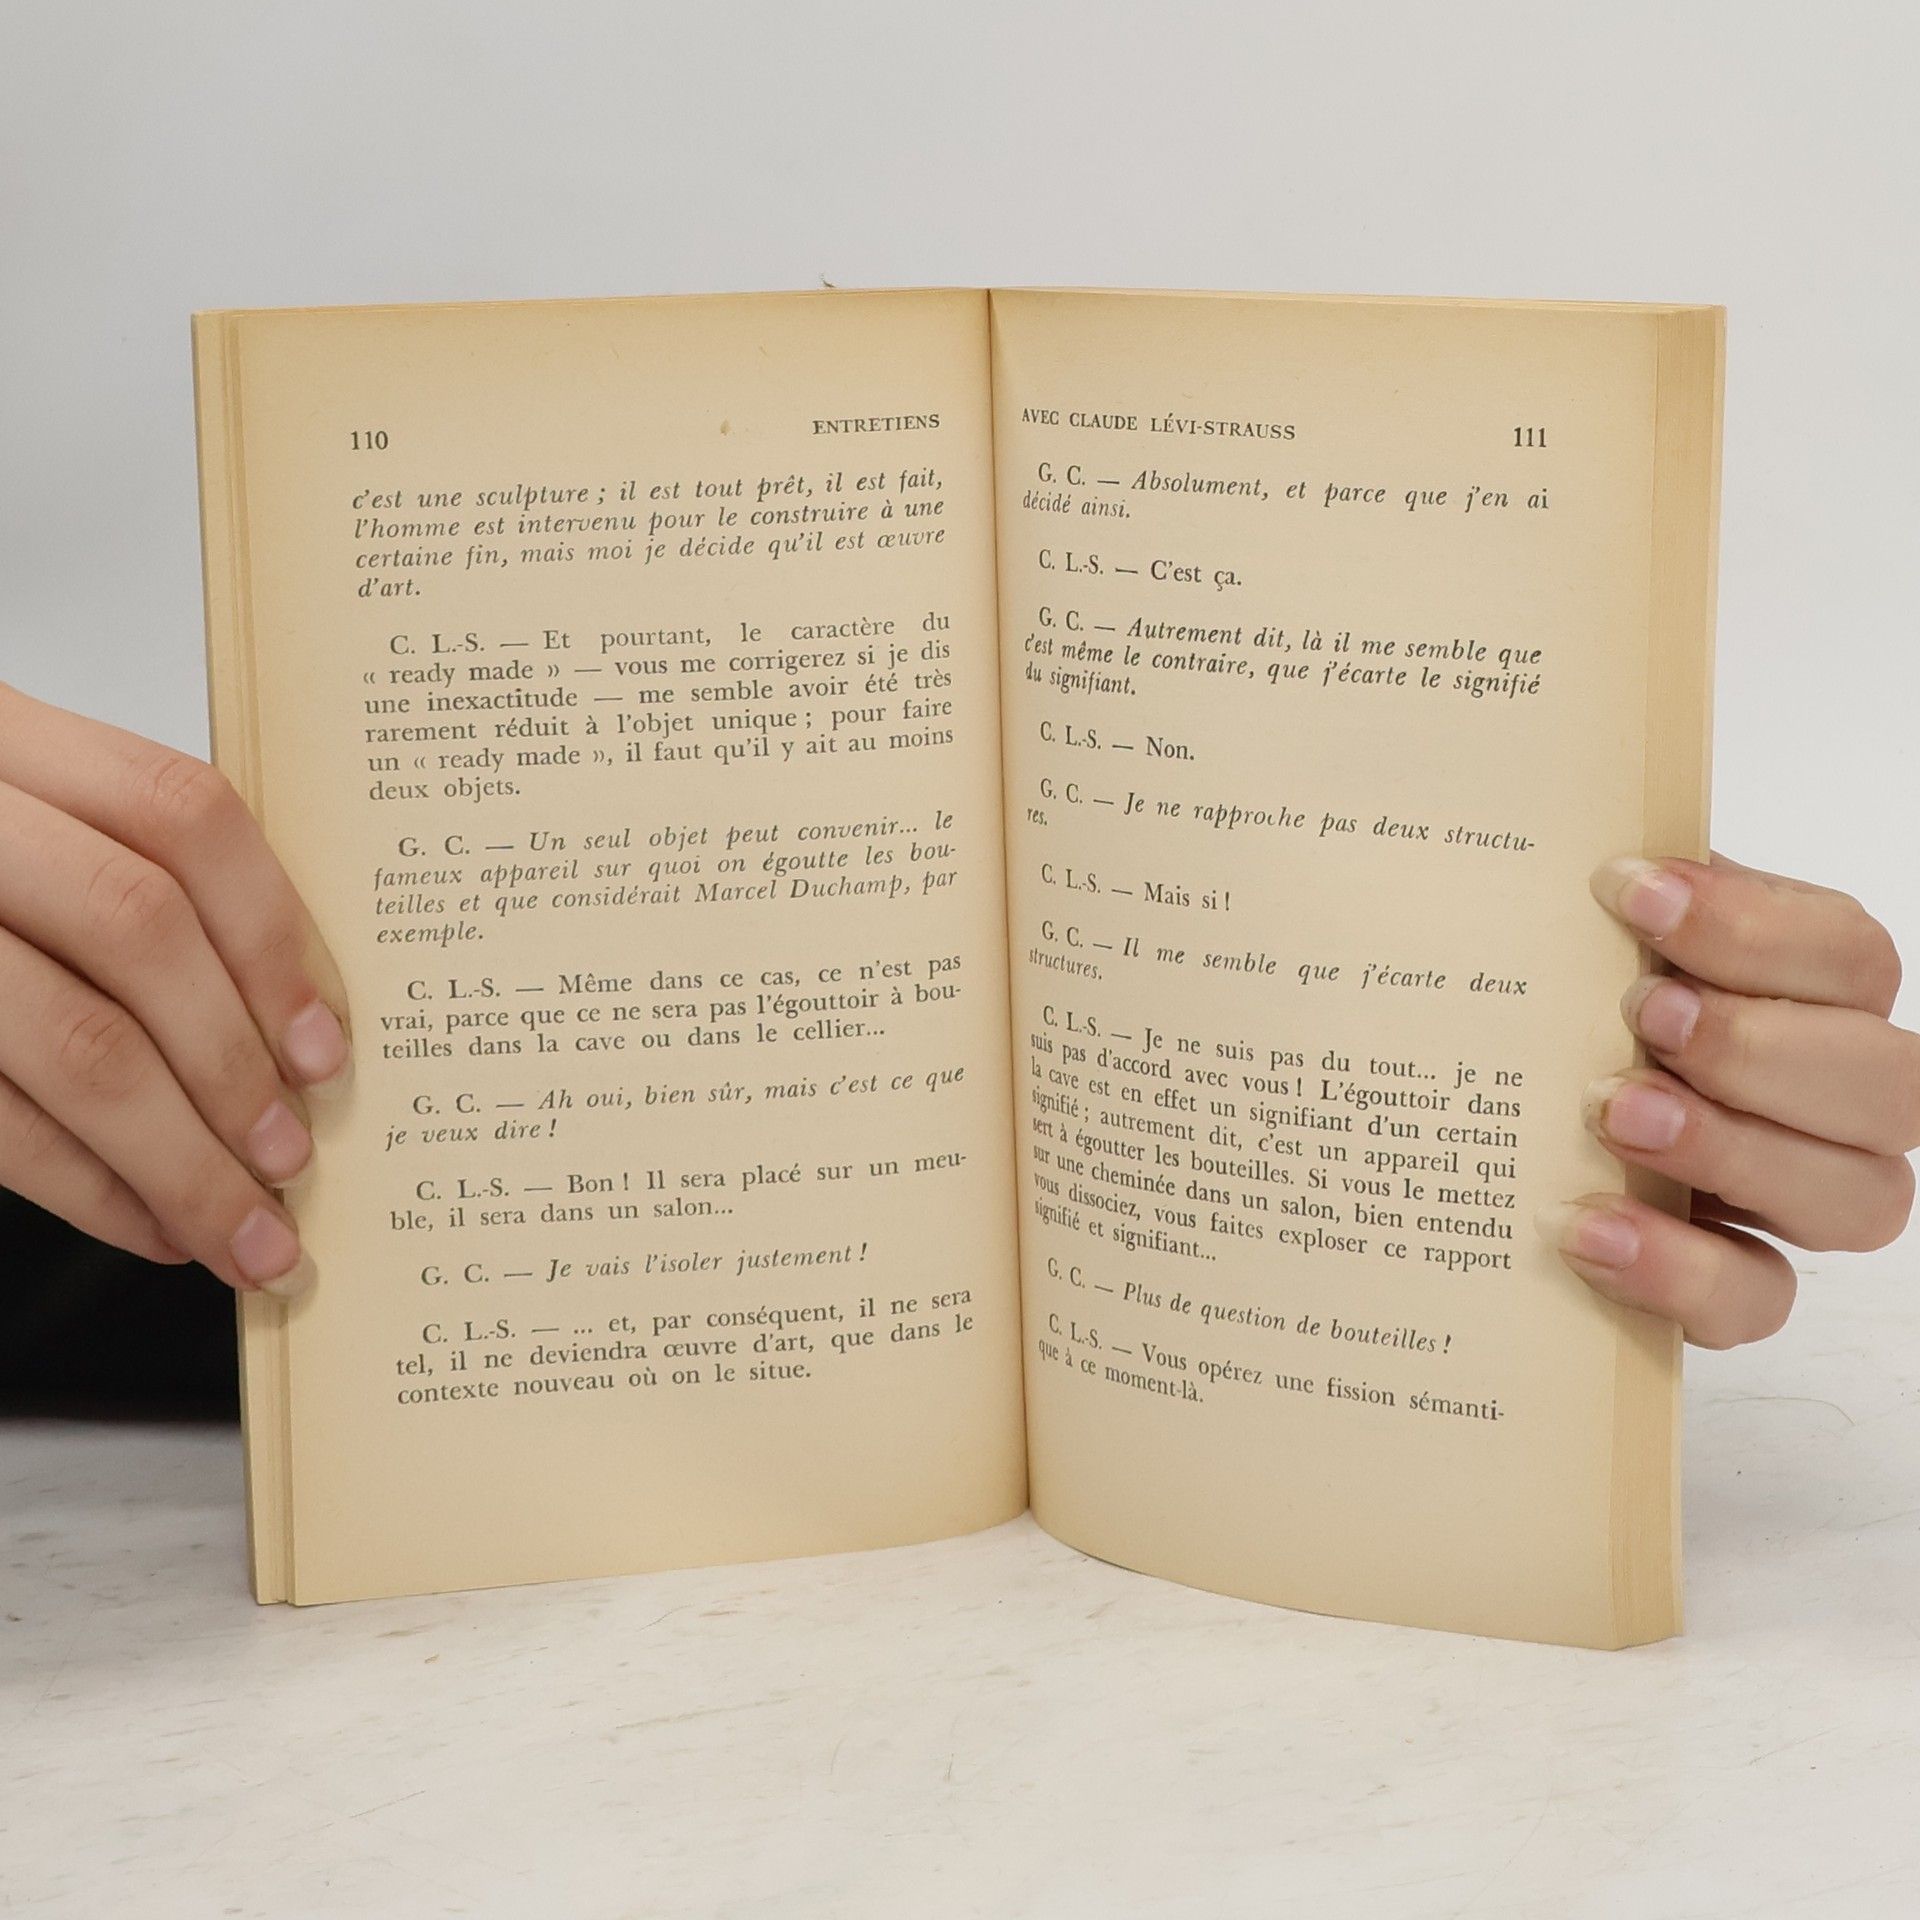 110 ENTRETIENS
c'est une sculpture ; il est tout prêt, il est fait,
l'homme est intervenu pour le construire à une
certaine fin, mais moi je décide qu'il est œuvre
d'art.
C. L.-S. — Et pourtant, le caractère du
« ready made » — vous me corrigerez si je dis
une inexactitude — me semble avoir été très
rarement réduit à l'objet unique ; pour faire
un « ready made », il faut qu'il y ait au moins
deux objets.
G. C. — Un seul objet peut convenir... le
fameux appareil sur quoi on égoutte les bou-
teilles et que considérait Marcel Duchamp, par
exemple.
C. L.-S. — Même dans ce cas, ce n'est pas
vrai, parce que ce ne sera pas l'égouttoir à bou-
teilles dans la cave ou dans le cellier...
G. C. — Ah oui, bien sûr, mais c'est ce que
je veux dire !
C. L.-S. — Bon ! Il sera placé sur un meu-
ble, il sera dans un salon...
G. C. — Je vais l'isoler justement !
C. L.-S. — ... et, par conséquent, il ne sera
tel, il ne deviendra œuvre d'art, que dans le
contexte nouveau où on le situe.
AVEC CLAUDE LÉVI-STRAUSS 111
G. C. — Absolument, et parce que j'en ai
décidé ainsi.
C. L.-S. — C'est ça.
G. C. — Autrement dit, là il me semble que
c'est même le contraire, que j'écarte le signifié
du signifiant.
C. L.-S. — Non.
G. C. — Je ne rapproche pas deux structu-
res.
C. L.-S. — Mais si !
G. C. — Il me semble que j'écarte deux
structures.
C. L.-S. — Je ne suis pas du tout... je ne
suis pas d'accord avec vous ! L'égouttoir dans
la cave est en effet un signifiant d'un certain
signifié ; autrement dit, c'est un appareil qui
sert à égoutter les bouteilles. Si vous le mettez
sur une cheminée dans un salon, bien entendu
vous dissociez, vous faites exploser ce rapport
signifié et signifiant...
G. C. — Plus de question de bouteilles !
C. L.-S. — Vous opérez une fission sémanti-
que à ce moment-là.